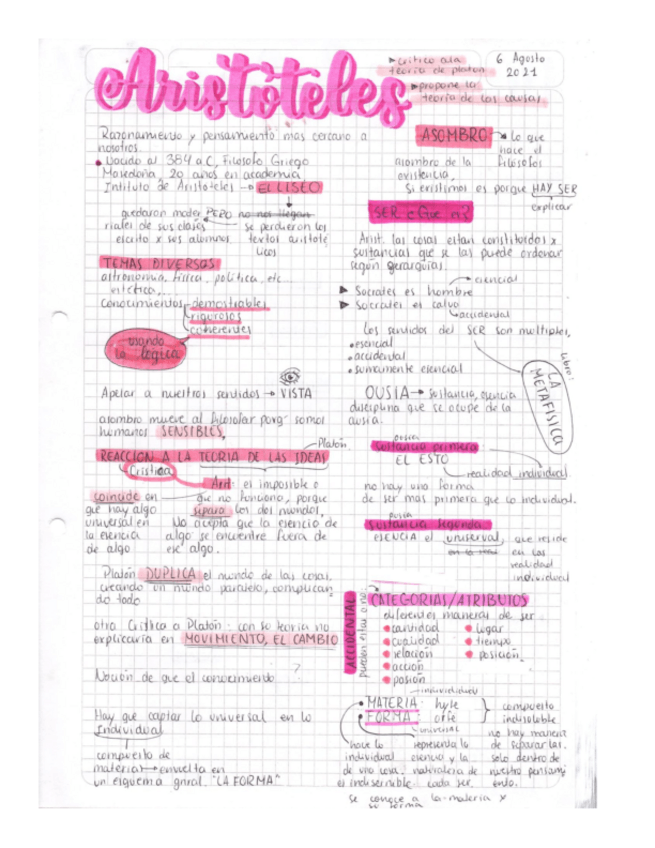 Aristóteles
▸critico a la
teoría de platon
▸propone la
teoría de las causas
6 Agosto
2021
Razonamiento y pensamiento mas cercano a
nosotros.
• Nacido al 384 a.C, Filosofo Griego
Macedonia, 20 años en academia
Intituto de Aristoteles → EL LISEO
quedaron mater PERO no nos llegan
riales de sus clases se perdieron los
escrito x sus alumnos textos aristoté
licos
TEMAS DIVERSOS
astronomia, física, política, etc
estética,
conocimientos demostrables
rigurosos
coherentes
usando
la logica
Apelar a nuestros sentidos → VISTA
asombro mueve al filosofar porq' somos
humanos SENSIBLES,
REACCION A LA TEORIA DE LAS IDEAS
Platón
Critica
Arit: el imposible o
coincide en que no funciono, porque
que hay algo separa los dos mundos,
universal en No acepta que la esencia de
la esencia algo se encuentre fuera de
de algo ese algo.
Platón DUPLICA el mundo de las cosas,
creando un mundo paralelo, complican
do todo
otra Critica a Platón: con su teoria no
explicaria en MOVIMIENTO, EL CAMBIO
Noción de que el conocimiento ?
Hay que captar lo universal en lo
Individual
compuesto de
material → envuelta en
un esquema gnral. "LA FORMA"
ASOMBRO → lo que
hace el
asombro de la filosofos
existencia,
Si existimos es porque HAY SER
explicar
SER ¿Que es?
Arist. las cosas estan constituidos x
sustancias que se las puede ordenar
según gerarquias.
esencial
▸ Socrates es hombre
▸ Socrates es calvo
accidental
los sentidos del SER son multiples,
• esencial
• accidental
• sumamente esencial
Libro:
LA
METAFISICA
OUSIA → sustancia, esencia
disciplina que se ocupe de la
ousia.
sustancia primera
EL ESTO
realidad individual
no hay una forma
de ser mas primera que la individual.
sustancia segunda
ESENCIA el universal, que reside
en las
realidad
individual
ACCIDENTAL
pueden estar o no
CATEGORIAS/ATRIBUTOS
diferentes maneras de ser
• cantidad • lugar
• cualidad • tiempo
• relación • posición
• acción
• pasión
individual
• MATERIA: hyle compuesto
• FORMA: indisoluble
universal no hay manera
hace lo representa la de separarlas.
individual esencia y la solo dentro de
de una cosa. naturaleza de nuestro pensami
el indisernible cada ser. ento.
se conoce a la materia x
su forma